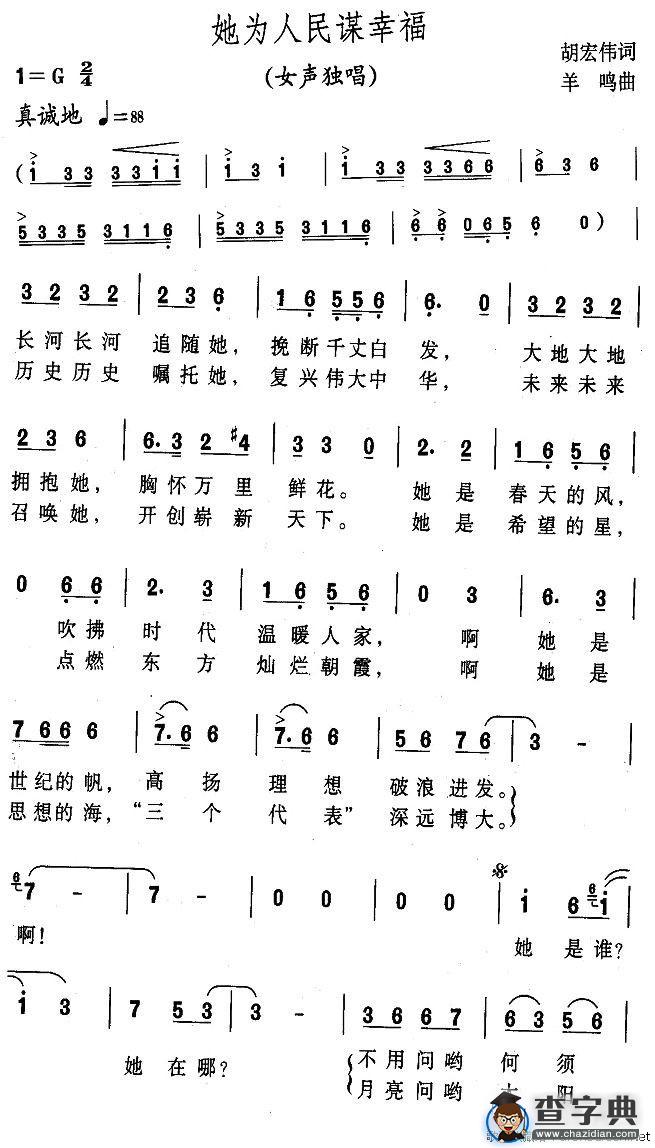 她为人民谋幸福
1=G 2/4 (女声独唱) 胡宏伟词
真诚地 ♩=88 羊 鸣曲
(i 3 3 3 3 i i | i 3 i | i 3 3 3 3 6 6 | 6 3 6 |
5 3 3 5 3 1 1 6 | 5 3 3 5 3 1 1 6 | 6 6 0 6 5 6 0 ) |
3 2 3 2 | 2 3 2 | 1 6 5 5 6 | 6. 0 | 3 2 3 2 |
长河长河 追随她, 挽断千丈白 发, 大地大地
历史历史 嘱托她, 复兴伟大中 华, 未来未来
2 3 6 | 6. 3 2 #4 | 3 3 0 | 2. 2 | 1 6 5 6 |
拥抱她, 胸怀万里 鲜花。 她 是 春天的风,
召唤她, 开创崭新 天下。 她 是 希望的星,
0 6 6 | 2. 3 | 1 6 5 6 | 0 3 | 6. 3 |
吹拂 时 代 温暖人家, 啊 她 是
点燃 东 方 灿烂朝霞, 啊 她 是
7 6 6 6 | 7. 6 6 | 7. 6 6 | 5 6 7 6 | 3 - |
世纪的帆, 高 扬 理 想 破浪进发。
思想的海, “三 个 代 表” 深远博大。
6 7 - | 7 - | 0 0 | 0 0 | i 6 6 i |
啊! 她 是谁?
i 3 | 7 5 3 | 3 - | 3 6 6 7 | 6 3 5 6 |
她 在哪? 不用问哟 何 须
月亮问哟 阳
查字典
www.chazidian.com